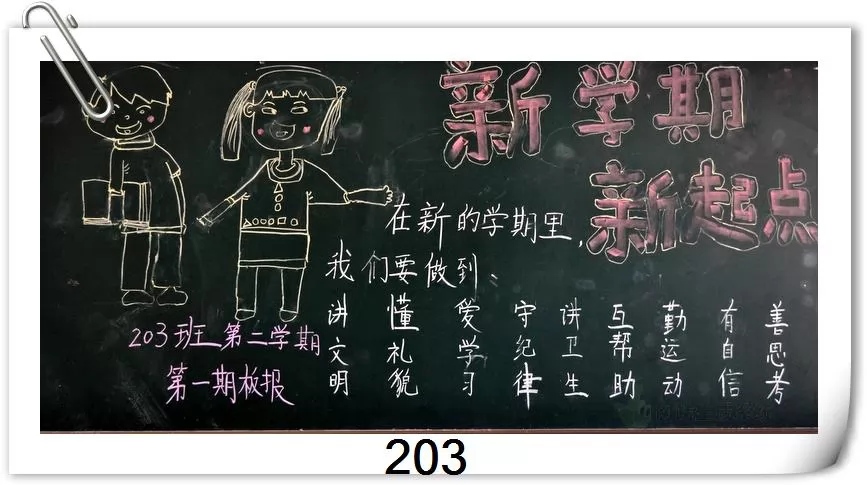 新学期
新起点
在新的学期里,
我们要做到:
讲文明
懂礼貌
爱学习
守纪律
讲卫生
互帮助
勤运动
有自信
善思考
203班第二学期
第一期板报
203